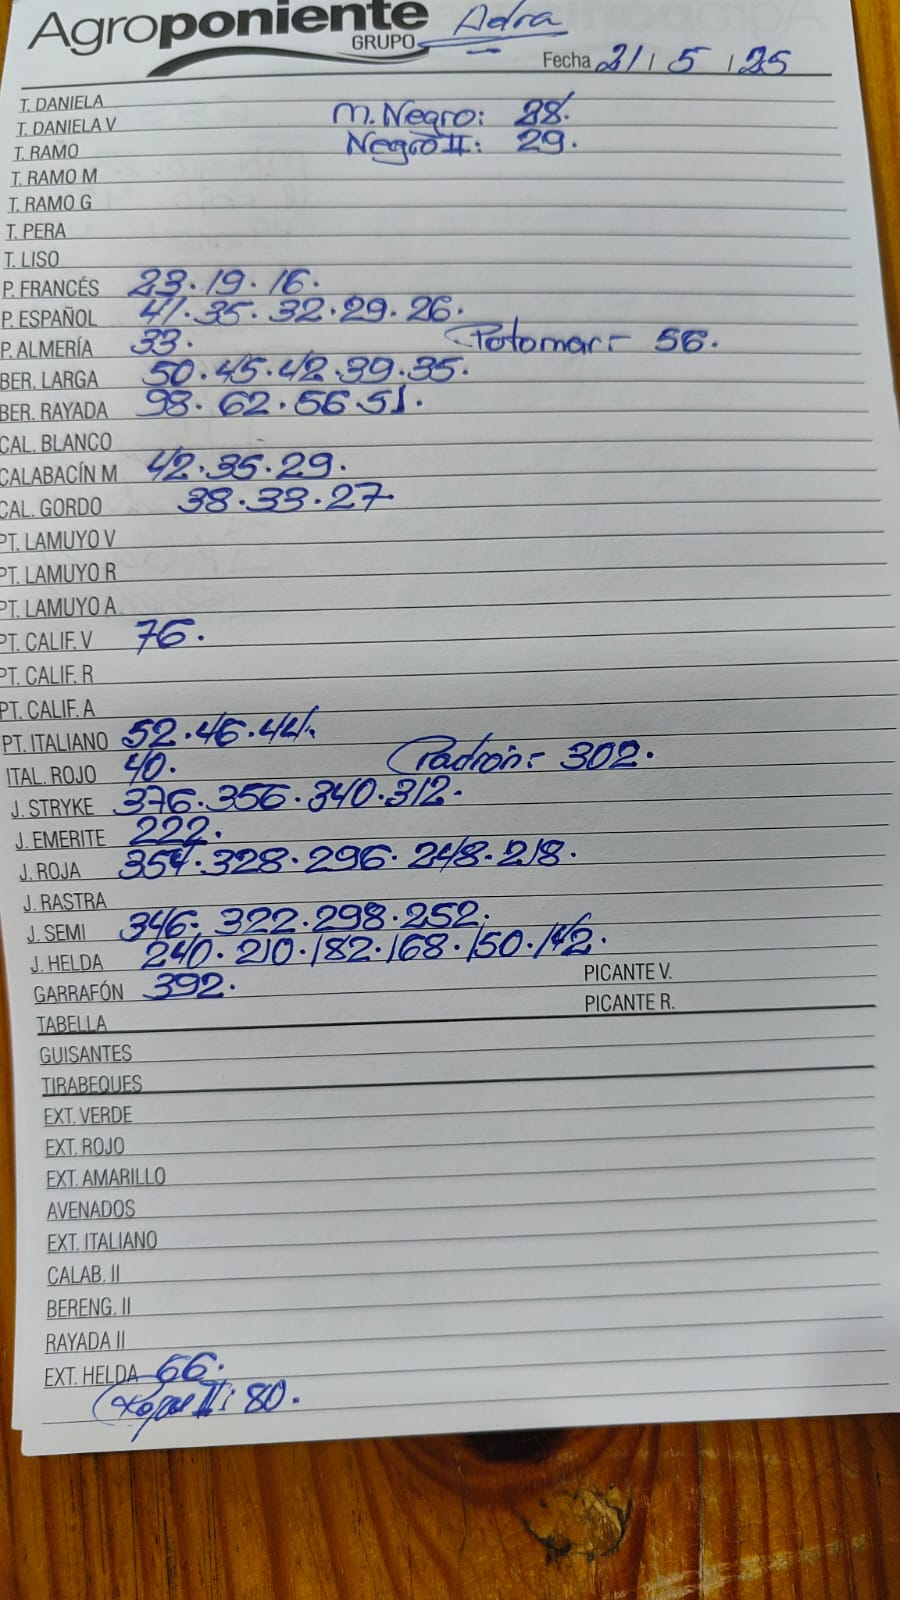 Agroponiente
GRUPO
Adra
Fecha 21 / 5 / 25
T. DANIELA
T. DANIELA V M. Negro: 28.
T. RAMO Negro II: 29.
T. RAMO M
T. RAMO G
T. PERA
T. LISO
P. FRANCÉS 23. 19. 16.
P. ESPAÑOL 41. 35. 32. 29. 26.
P. ALMERÍA 33. Potomar= 56.
BER. LARGA 50. 45. 42. 39. 35.
BER. RAYADA 98. 62. 56. 51.
CAL. BLANCO
CALABACÍN M 42. 35. 29.
CAL. GORDO 38. 33. 27.
PT. LAMUYO V
PT. LAMUYO R
PT. LAMUYO A
PT. CALIF. V 76.
PT. CALIF. R
PT. CALIF. A
PT. ITALIANO 52. 46. 44.
ITAL. ROJO 40. Padrón= 302.
J. STRYKE 376. 356. 340. 312.
J. EMERITE 222.
J. ROJA 354. 328. 296. 248. 218.
J. RASTRA
J. SEMI 346. 322. 298. 252.
J. HELDA 240. 210. 182. 168. 150. 142.
GARRAFÓN 392. PICANTE V.
TABELLA PICANTE R.
GUISANTES
TIRABEQUES
EXT. VERDE
EXT. ROJO
EXT. AMARILLO
AVENADOS
EXT. ITALIANO
CALAB. II
BERENG. II
RAYADA II
EXT. HELDA 66.
II: 80.